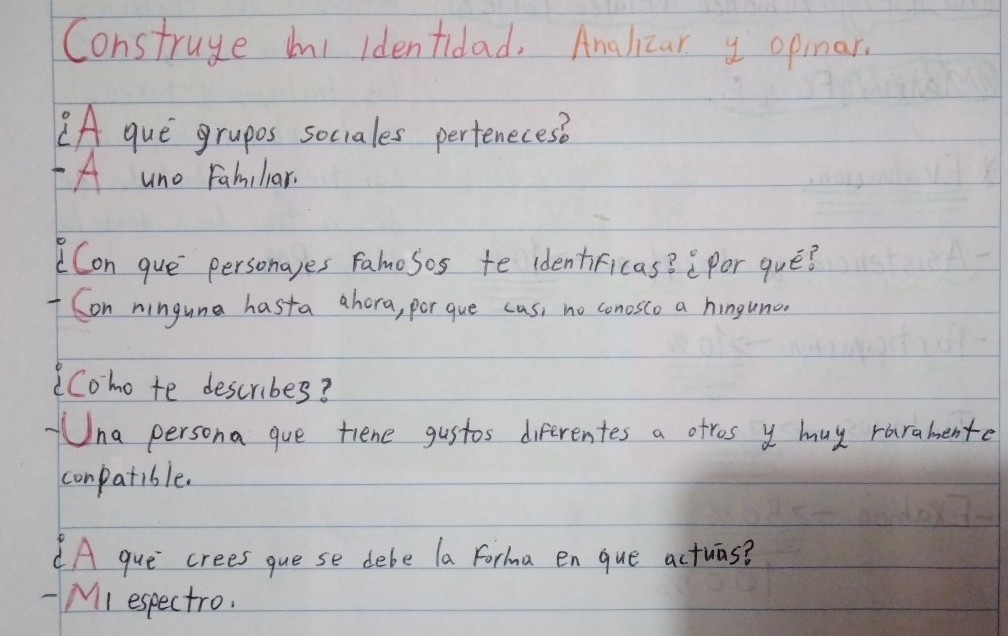 Construye mi identidad. Analizar y opinar.
¿A qué grupos sociales perteneces?
- A uno familiar.
¿Con qué personajes famosos te identificas? ¿por qué?
- Con ninguna hasta ahora, por que casi no conosco a ninguno.
¿Cómo te describes?
- Una persona que tiene gustos diferentes a otros y muy raramente
conpatible.
¿A qué crees que se debe la forma en que actúas?
- Mi espectro.